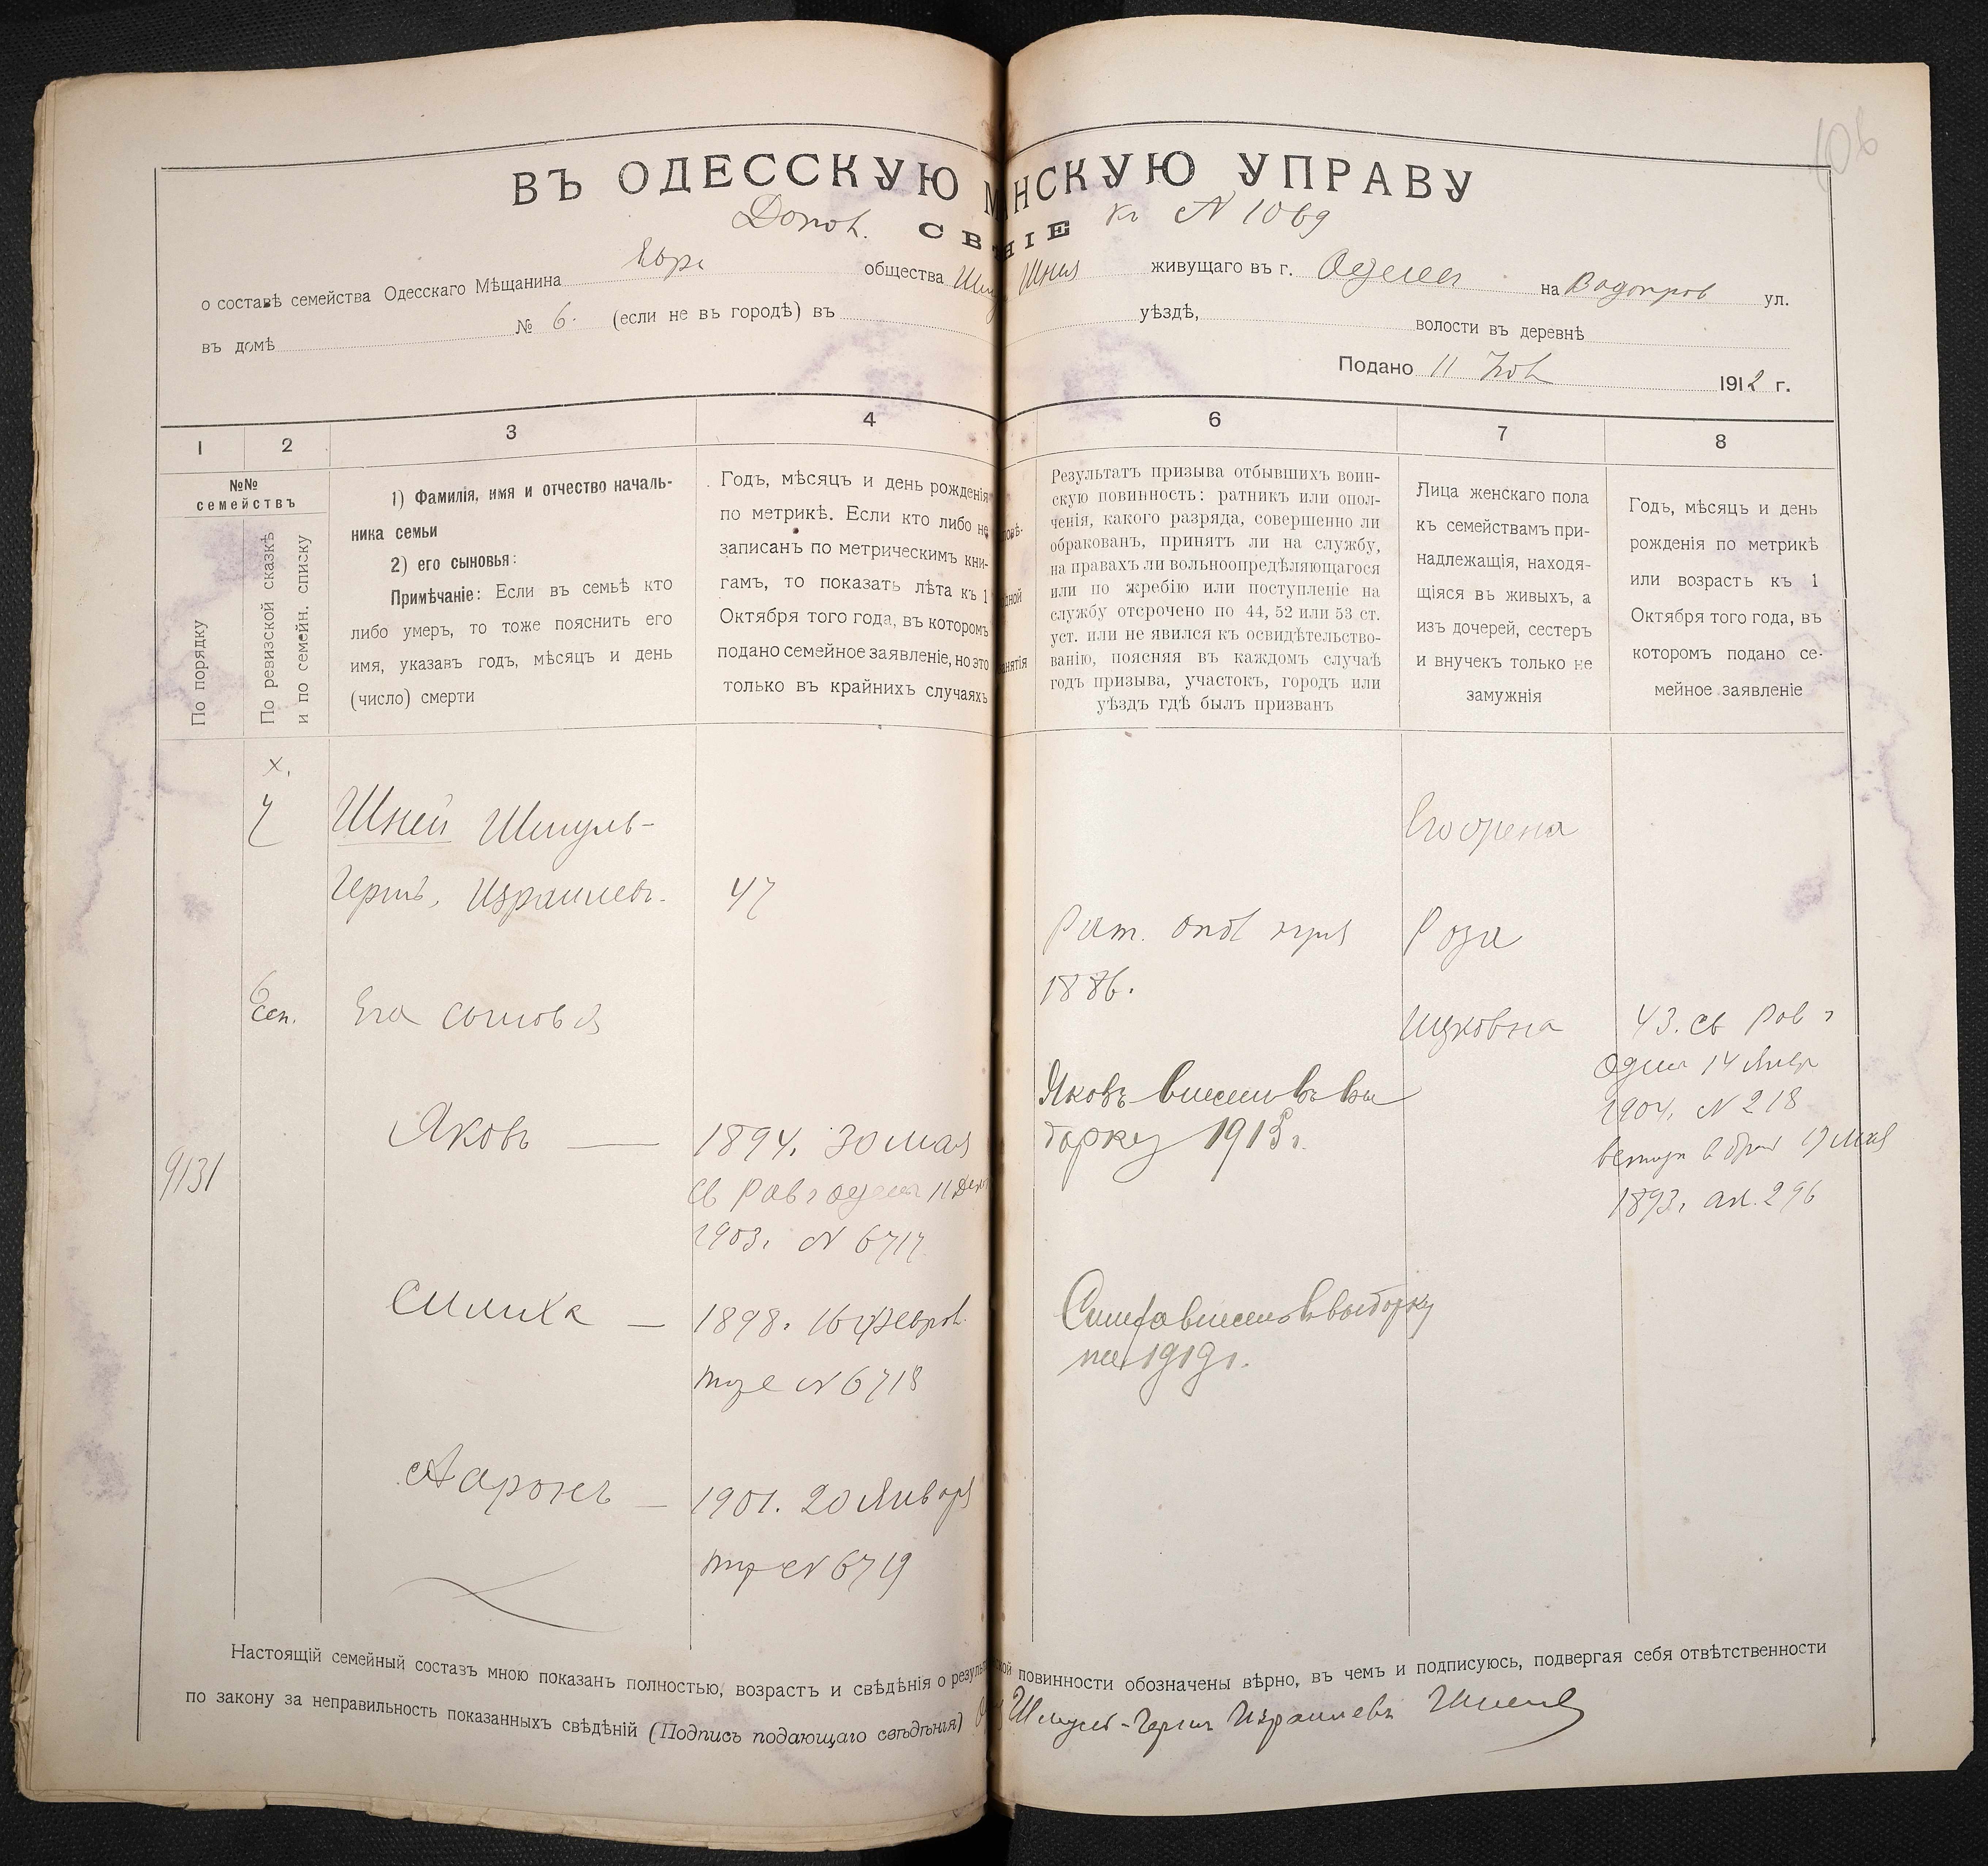 106
ВЪ ОДЕССКУЮ М НСКУЮ УПРАВУ
Допол. къ № 1069
СВ НІЕ
о составѣ семейства Одесскаго Мѣщанина Евр. общества Шней живущаго въ г. Одессѣ на Водопров ул.
въ домѣ № 6. (если не въ городѣ) въ уѣздѣ, волости въ деревнѣ
Подано 11 1912 г.
1 2 3 4 6 7 8
№№ семействъ
По порядку
По ревизской сказкѣ
и по семейн. списку
1) Фамилія, имя и отчество началь-
ника семьи
2) его сыновья:
Примѣчаніе: Если въ семьѣ кто
либо умеръ, то тоже пояснить его
имя, указавъ годъ, мѣсяцъ и день
(число) смерти
Годъ, мѣсяцъ и день рожденія
по метрикѣ. Если кто либо не
записанъ по метрическимъ кни-
гамъ, то показать лѣта къ 1
Октября того года, въ которомъ
подано семейное заявленіе, но это
только въ крайнихъ случаяхъ
Результатъ призыва отбывшихъ воин-
скую повинность: ратникъ или опол-
ченія, какого разряда, совершенно ли
обракованъ, принятъ ли на службу,
на правахъ ли вольноопредѣляющагося
или по жребію или поступленіе на
службу отсрочено по 44, 52 или 53 ст.
уст. или не явился къ освидѣтельство-
ванію, поясняя въ каждомъ случаѣ
годъ призыва, участокъ, городъ или
уѣздъ гдѣ былъ призванъ
Лица женскаго пола
къ семействамъ при-
надлежащія, находя-
щіяся въ живыхъ, а
изъ дочерей, сестеръ
и внучекъ только не
замужнія
Годъ, мѣсяцъ и день
рожденія по метрикѣ
или возрастъ къ 1
Октября того года, въ
которомъ подано се-
мейное заявленіе
х.
Шней Шмуль-
Герш. Израилев. 47
Рат. опол
1886.
Его жена
Роза
Ицковна
43. св Рав г
Одессы 14 Янвр
1904. № 218
17 мая
1893. ак. 296
6 сен.
Его сыновья
9131
Яковъ — 1894. 30 мая
св Рав г Одессы 11 Дек
1903. № 6717
Яковъ внесенъ въ вы
борку 1915 г.
Симха — 1898. 16 Феврал.
тоже № 6718
Симха внесенъ въ выборку
на 1919 г.
Ааронъ — 1901. 20 Января
тоже № 6719
Настоящій семейный составъ мною показанъ полностью, возрастъ и свѣдѣнія о резуль ской повинности обозначены вѣрно, въ чемъ и подписуюсь, подвергая себя отвѣтственности
по закону за неправильность показанныхъ свѣдѣній (Подпись подающаго свѣдѣнія) Шмуль-Герш Израилевъ Шней